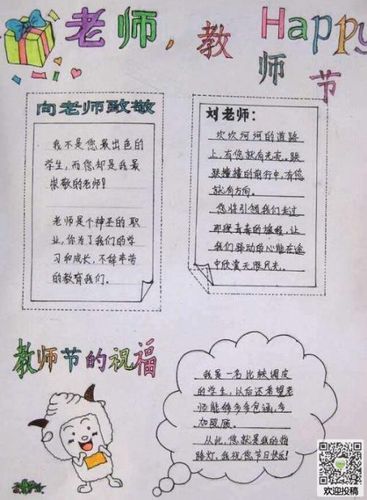 老师，教 Happy
师
节
向老师致敬
我不是您最出色的
学生，而您却是我最
崇敬的老师！
老师是个神圣的职
业，你为了我们的学
习和成长，不辞辛劳
的教育我们。
刘老师：
坎坎坷坷的道路
上，有您就有光亮。跌
跌撞撞的前行中，有您
就有方向。
您将引领我们去过
那段青春的旅程，让
我们躁动的心能在途
中欣赏无限风光。
教师节的祝福
我是一名比较调皮
的学生，从后还希望老
师能够多多包涵，多
加照应。
从此，您就是我的指
路灯，我祝您节日快乐！
欢迎投稿